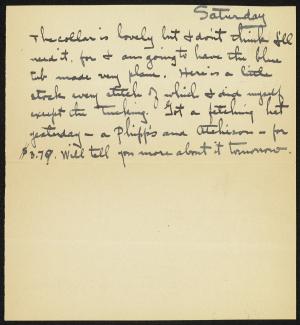 Saturday
The collar is lovely but I don't think I'll
need it, for I am going to have the blue
tub made very plain. Here is a little
stock every stitch of which I did myself
except the tucking. Got a fetching hat
yesterday – a Phipps and Atchison – for
$3.79. Will tell you more about it tomorrow.